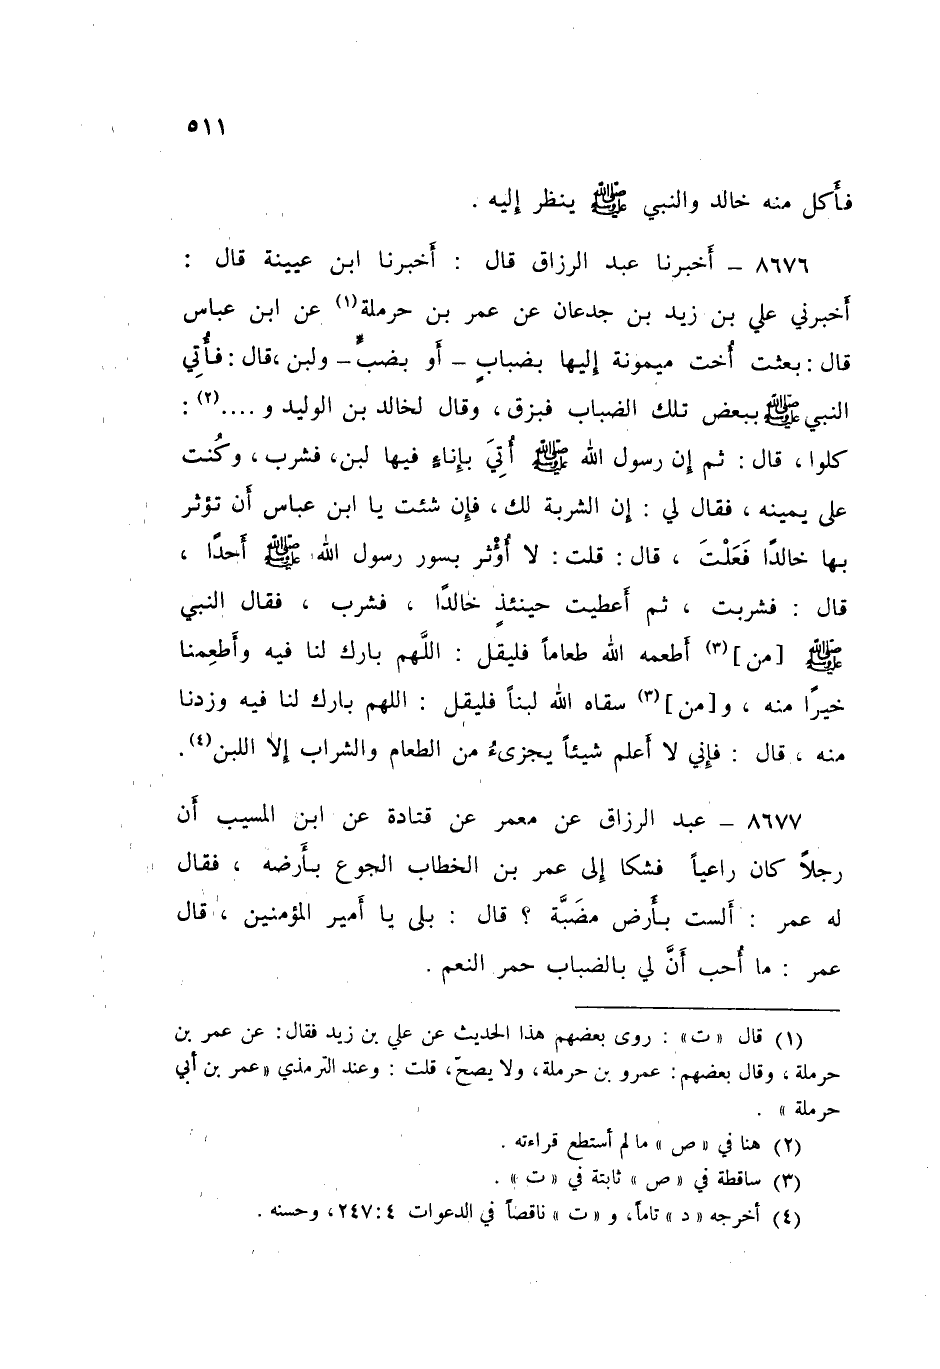 ٥١١
فأَكل منه خالد والنبي ﷺ ينظر إليه .
٨٦٧٦ – أَخبرنا عبد الرزاق قال : أَخبرنا ابن عيينة قال :
أَخبرني علي بن زيد بن جدعان عن عمر بن حرملة(١) عن ابن عباس
قال : بعثت أُخت ميمونة إليها بضبابٍ – أَو بضبٍّ – ولبن ، قال : فأُتي
النبي ﷺ ببعض تلك الضباب فبزق ، وقال لخالد بن الوليد و ....(٢) :
كلوا ، قال : ثم إن رسول الله ﷺ أُتيَ بإناءٍ فيها لبن ، فشرب ، وكُنت
على يمينه ، فقال لي : إن الشربة لك ، فإن شئت يا ابن عباس أَن تؤثر
بها خالدًا فَعَلْتَ ، قال : قلت : لا أُوْثر بسور رسول الله ﷺ أَحدًا ،
قال : فشربت ، ثم أَعطيت حينئذٍ خالدًا ، فشرب ، فقال النبي
ﷺ [من](٣) أَطعمه الله طعاماً فليقل : اللَّهم بارك لنا فيه وأَطعِمنا
خيرًا منه ، و[من](٣) سقاه الله لبناً فليقل : اللهم بارك لنا فيه وزدنا
منه ، قال : فإني لا أَعلم شيئاً يجزىءُ من الطعام والشراب إلا اللبن(٤) .
٨٦٧٧ – عبد الرزاق عن معمر عن قتادة عن ابن المسيب أَن
رجلاً كان راعياً فشكا إلى عمر بن الخطاب الجوع بأَرضه ، فقال
له عمر : أَلست بأَرض مضَبَّة ؟ قال : بلى يا أَمير المؤمنين ، قال
عمر : ما أُحب أَنَّ لي بالضباب حمر النعم .
(١) قال «ت» : روى بعضهم هذا الحديث عن علي بن زيد فقال : عن عمر بن
حرملة ، وقال بعضهم : عمرو بن حرملة ، ولا يصحّ ، قلت : وعند الترمذي «عمر بن أبي
حرملة » .
(٢) هنا في « ص » ما لم أستطع قراءته .
(٣) ساقطة في « ص » ثابتة في « ت » .
(٤) أخرجه « د » تاماً ، و « ت » ناقصاً في الدعوات ٤ : ٢٤٧ ، وحسنه .